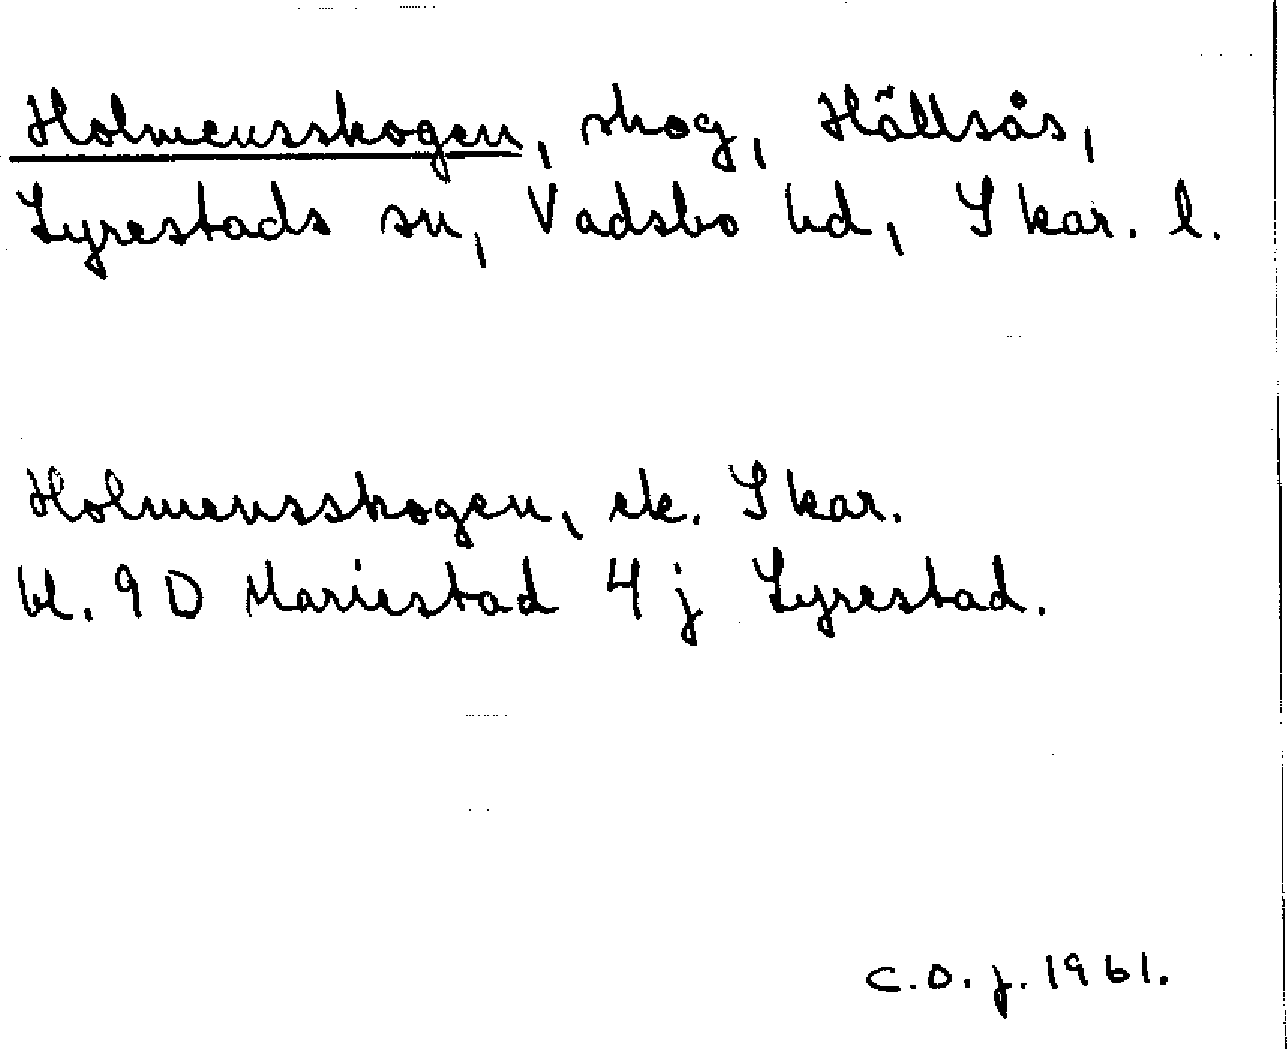 Holmensskogen, skog, Hällsås,
Lyrestads sn, Vadsbo hd, Skar. l.
Holmensskogen, ek. Skar.
bl. 9 D Mariestad 4 j Lyrestad.
C.O.J. 1961.